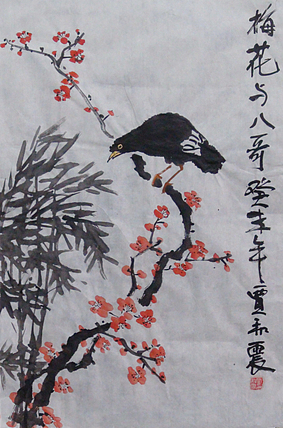 梅花与八哥癸未年贾和震